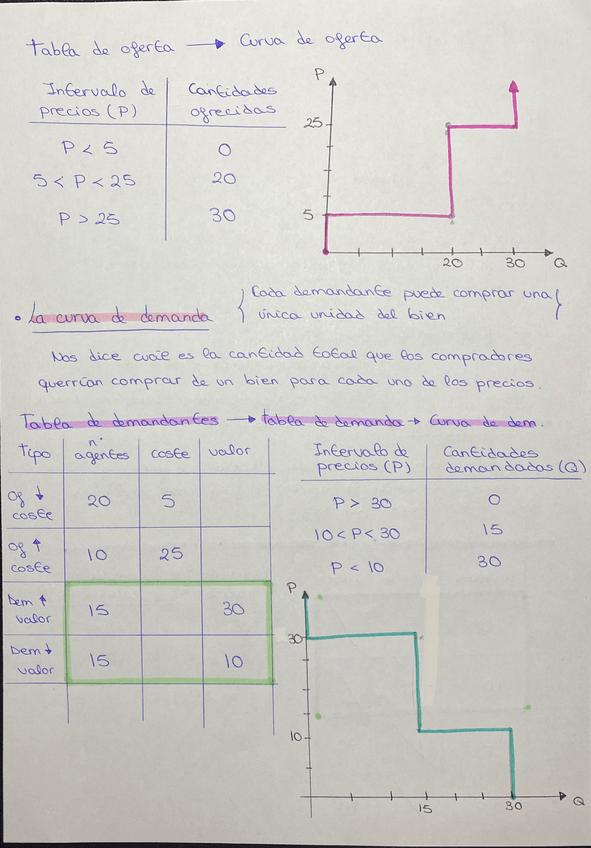 Tabla de oferta → Curva de oferta
Intervalo de precios (P) | Cantidades ogrecidas
P < 5 | 0
5 < P < 25 | 20
P > 25 | 30
P
25
5
20 30 Q
• La curva de demanda { Cada demandante puede comprar una
única unidad del bien }
Nos dice cuál es la cantidad total que los compradores
querrían comprar de un bien para cada uno de los precios.
Tabla de demandantes → tabla de demanda → Curva de dem.
Tipo | nº agentes | coste | valor
Of ↓ coste | 20 | 5
Of ↑ coste | 10 | 25
Dem ↑ valor | 15 | 30
Dem ↓ valor | 15 | 10
Intervalo de precios (P) | Cantidades demandadas (Q)
P > 30 | 0
10 < P < 30 | 15
P < 10 | 30
P
30
10
15 30 Q